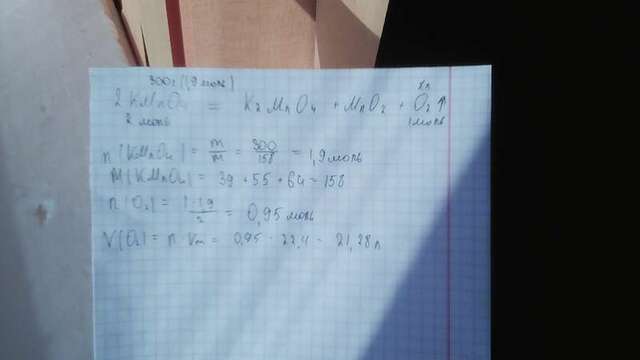 300г (1,9 моль) xл
2 KMnO4 = K2MnO4 + MnO2 + O2↑
2 моль 1моль
n (KMnO4) = m/M = 300/158 = 1,9моль
M(KMnO4) = 39 + 55 + 64 = 158
n (O2) = 1·1,9/2 = 0,95 моль
V(O2) = n · Vm = 0,95 · 22,4 = 21,28 л